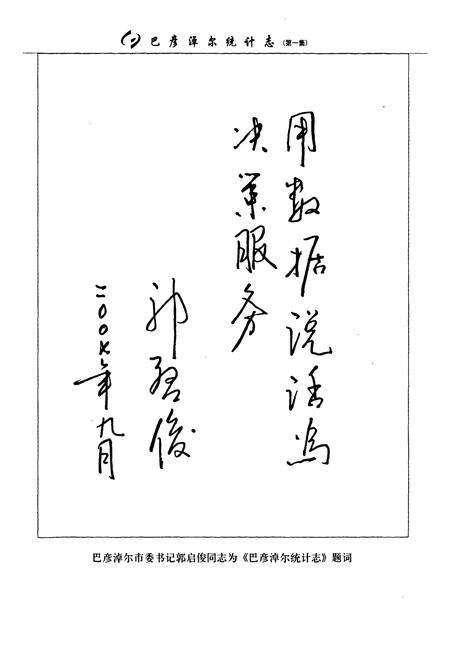 巴彦淖尔统计志(第一集)
用数据说话为
决策服务
郭启俊
二〇〇七年九月
巴彦淖尔市委书记郭启俊同志为《巴彦淖尔统计志》题词